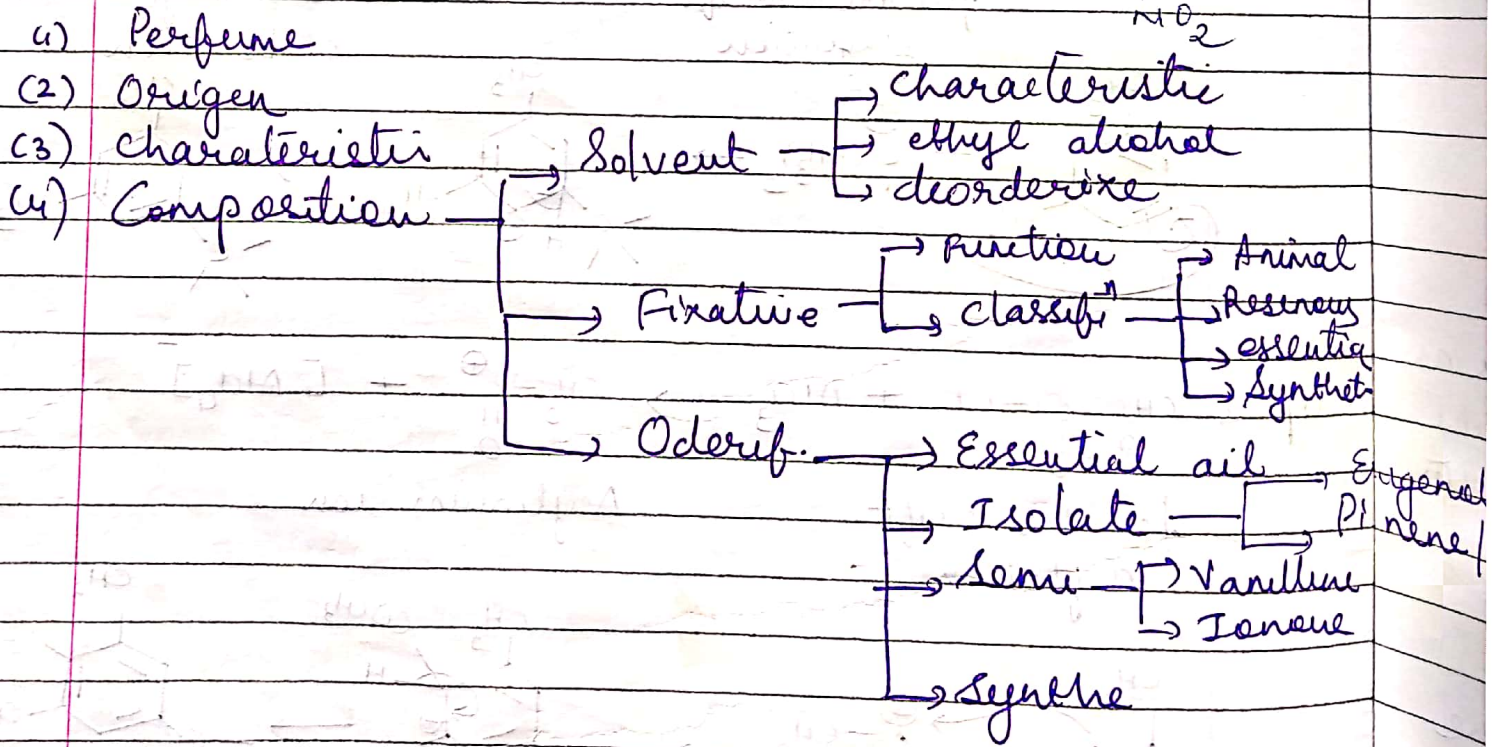 NO2
(1) Perfume
(2) Origen
(3) Charateristi
(4) Composition
Solvent
Characteristic
ethyl alcohol
deorderize
Fixative
Function
Classifiⁿ
Animal
Resinous
essentia
Synthet
Oderif.
Essential oil
Isolate
Eugenol
Pinene
Semi
Vanilline
Ionone
Synthe